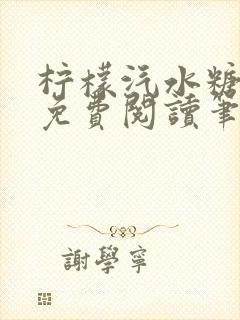 柠檬汽水糖
免費閱讀筆
謝學寧